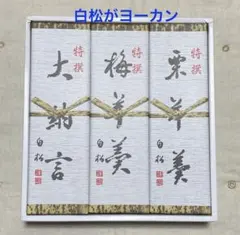 白松がヨーカン
特撰
栗羊羹
白松
特撰
梅羊羹
白松
特撰
大納言
白松